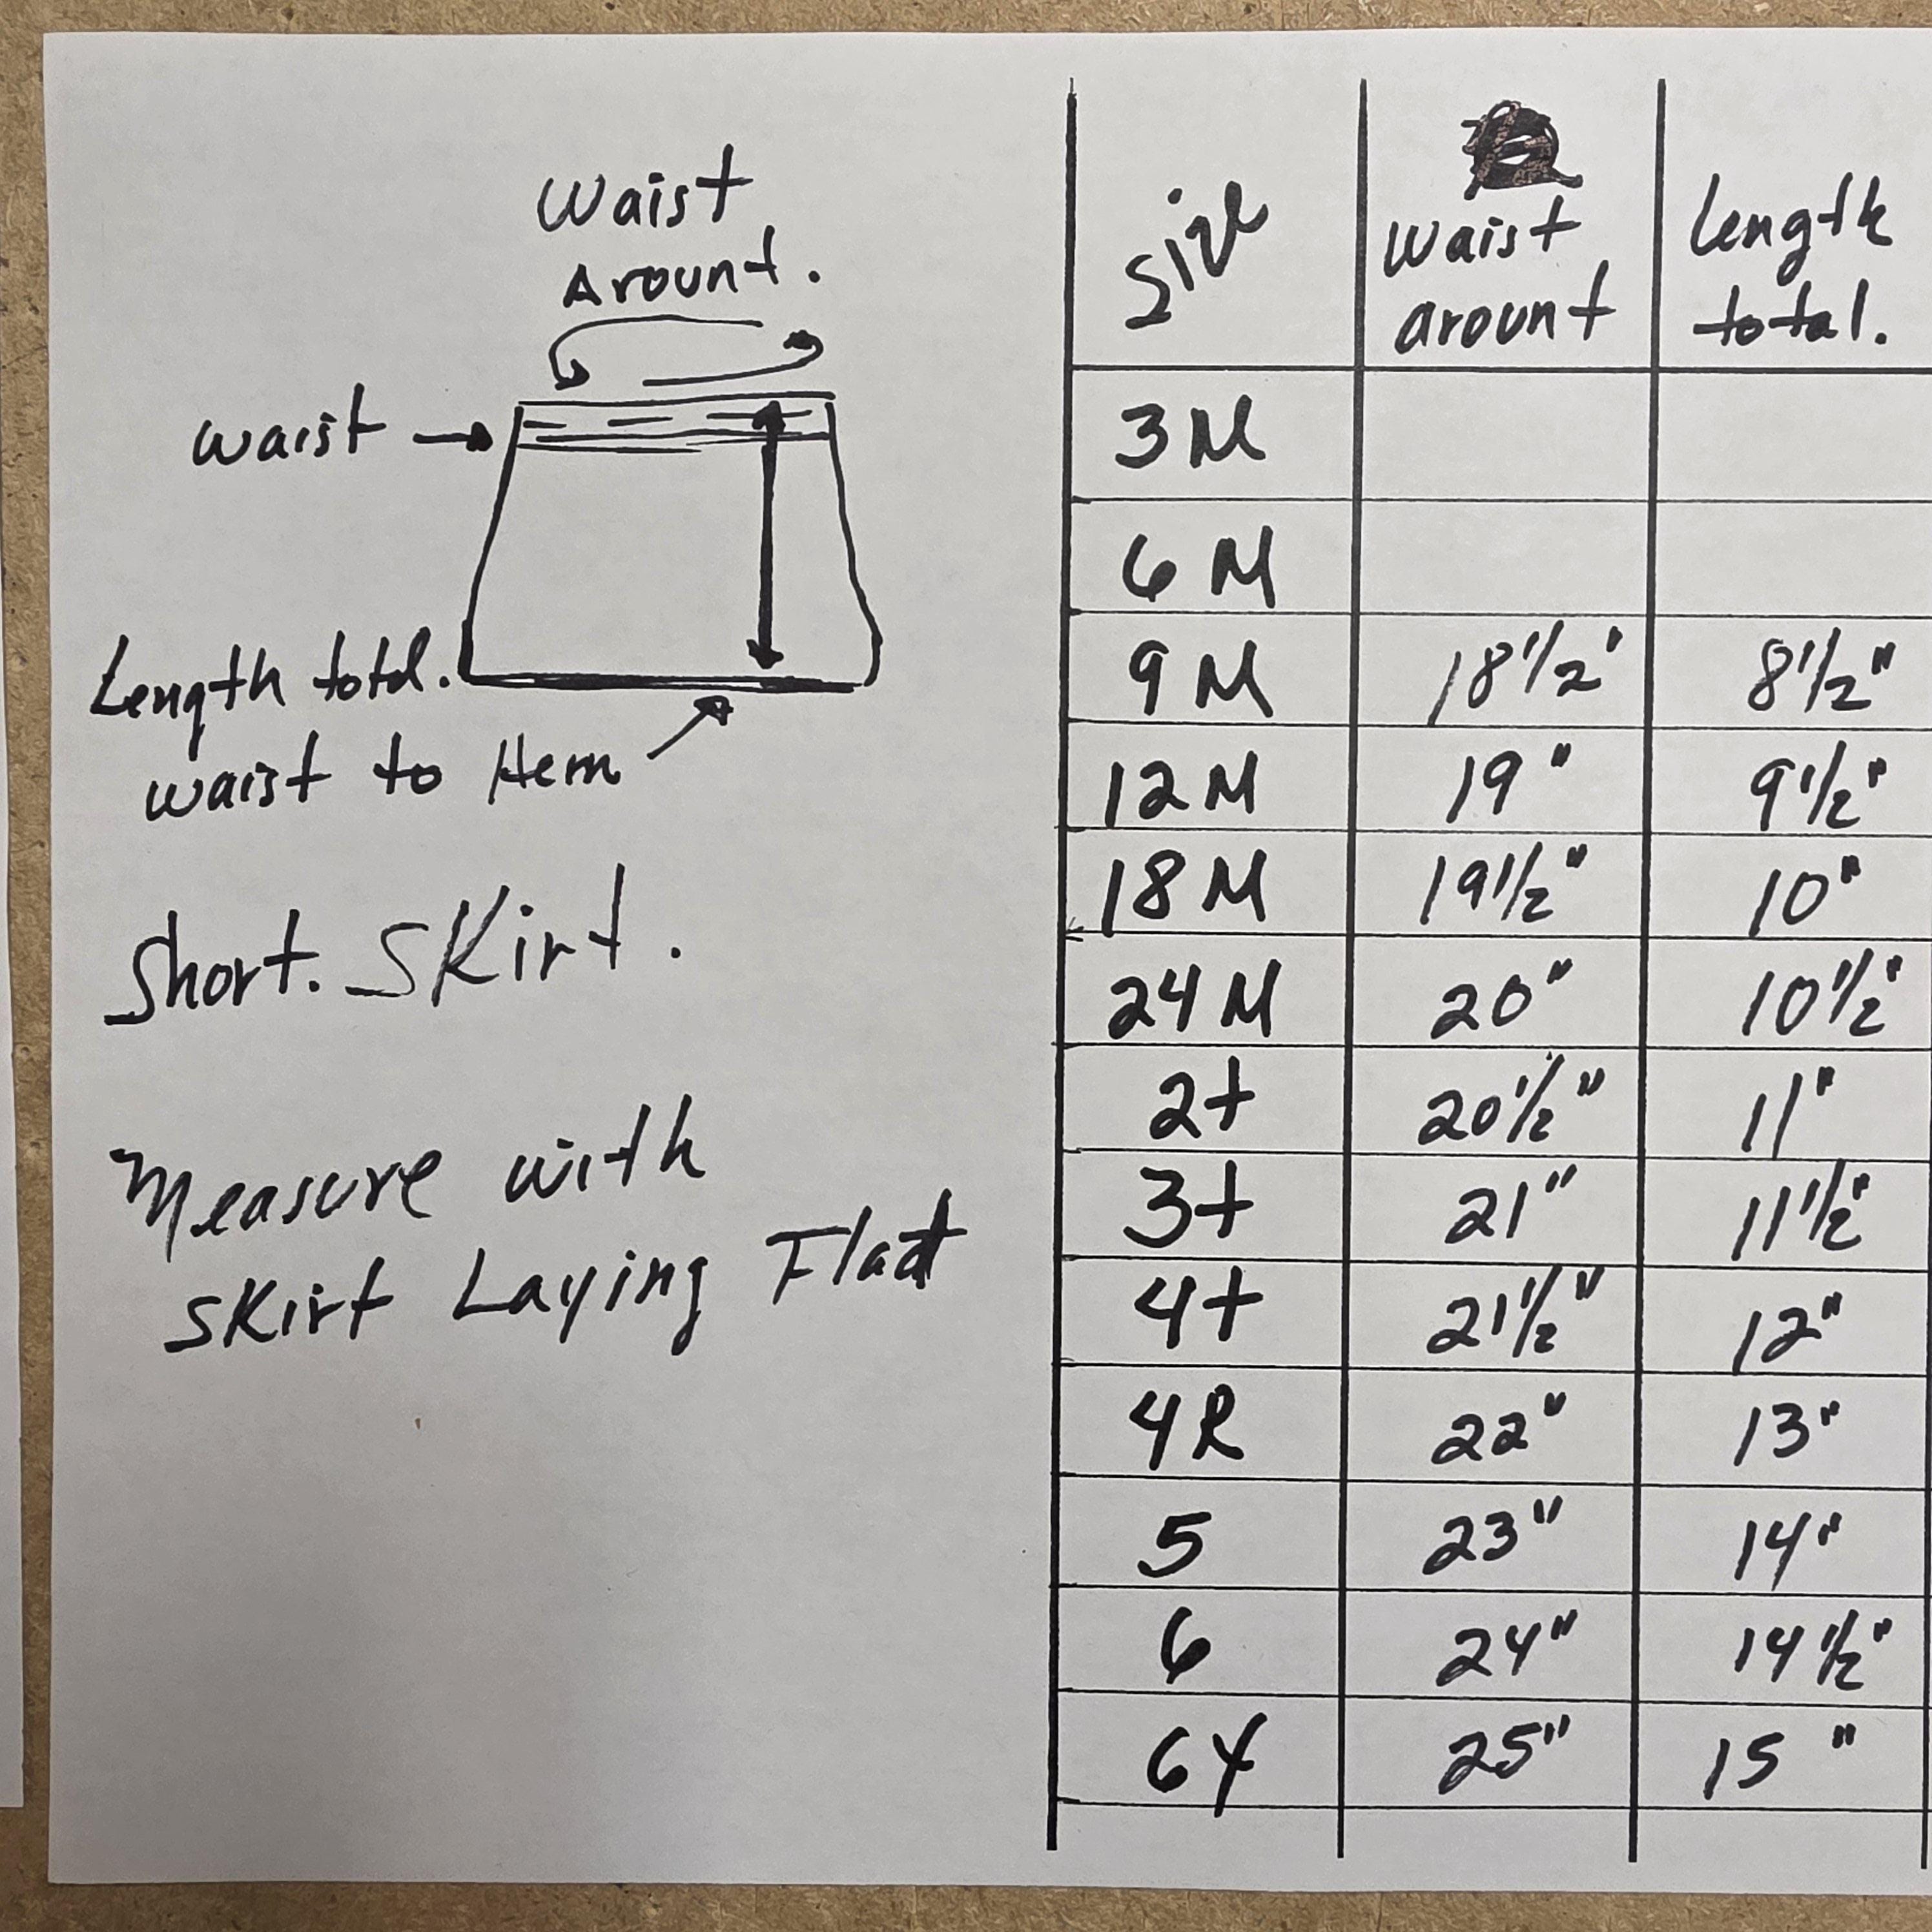 Waist
Arount.
waist
Length total.
waist to Hem
Short. Skirt.
Measure with
skirt Laying Flat
Size waist arount length total.
3M
6M
9M 18 1/2' 8 1/2"
12M 19" 9 1/2"
18M 19 1/2" 10"
24M 20" 10 1/2"
2t 20 1/2" 11"
3t 21" 11 1/2"
4t 21 1/2" 12"
4R 22" 13"
5 23" 14"
6 24" 14 1/2"
6Y 25" 15"